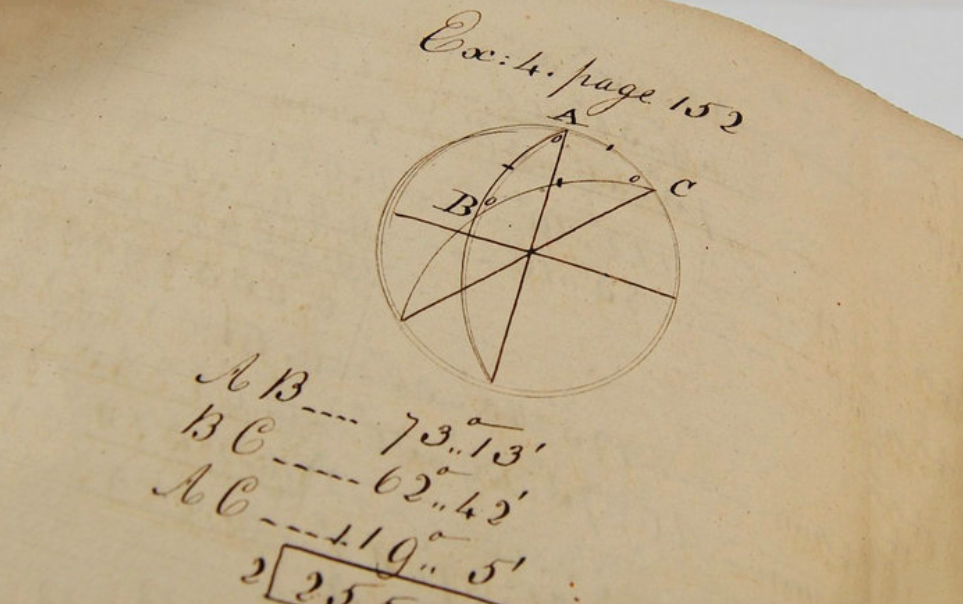 Ex: 4. page 152
A
C
B
AB---- 73°..13'
BC----- 62°..42'
AC----119°.. 5'
2 255